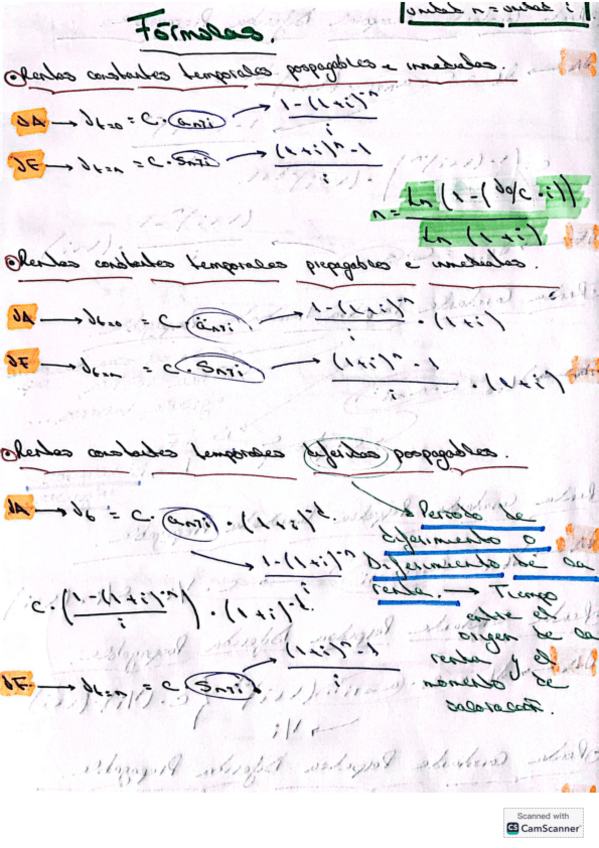 unidad n = unidad i
Fórmulas.
Rentas constantes temporales pospagables e inmediatas.
VA → Vt=0 = C · an¬i → 1-(1+i)^-n / i
VF → Vt=n = C · Sn¬i → (1+i)^n - 1 / i
n = Ln (1-(V0/C · i)) / Ln (1+i)
Rentas constantes temporales prepagables e inmediatas.
VA → Vt=0 = C · än¬i → 1-(1+i)^-n / i · (1+i)
VF → Vt=n = C · S̈n¬i → (1+i)^n - 1 / i · (1+i)
Rentas constantes temporales diferidas pospagables.
VA → V0 = C · an¬i · (1+i)^-d.
→ 1-(1+i)^-n / i
C · (1-(1+i)^-n / i) · (1+i)^-d.
VF → Vt=n = C · Sn¬i. → (1+i)^n - 1 / i
→ Periodo de
diferimiento o
Diferimiento de la
renta. → Tiempo
entre el
origen de la
renta y el
momento de
valoración.
Scanned with
CS CamScanner